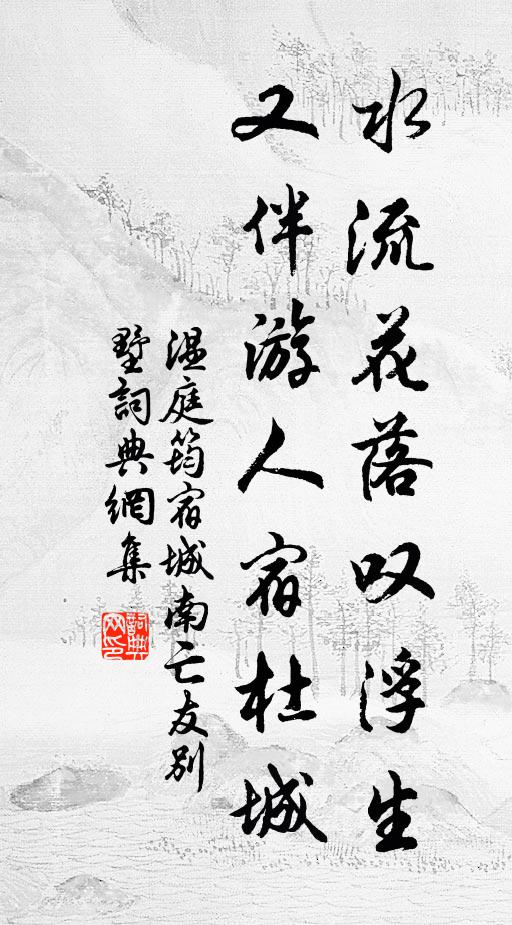 水流花落叹浮生
又伴游人宿杜城
温庭筠宿城南亡友别
墅詞典網集
詞典网印